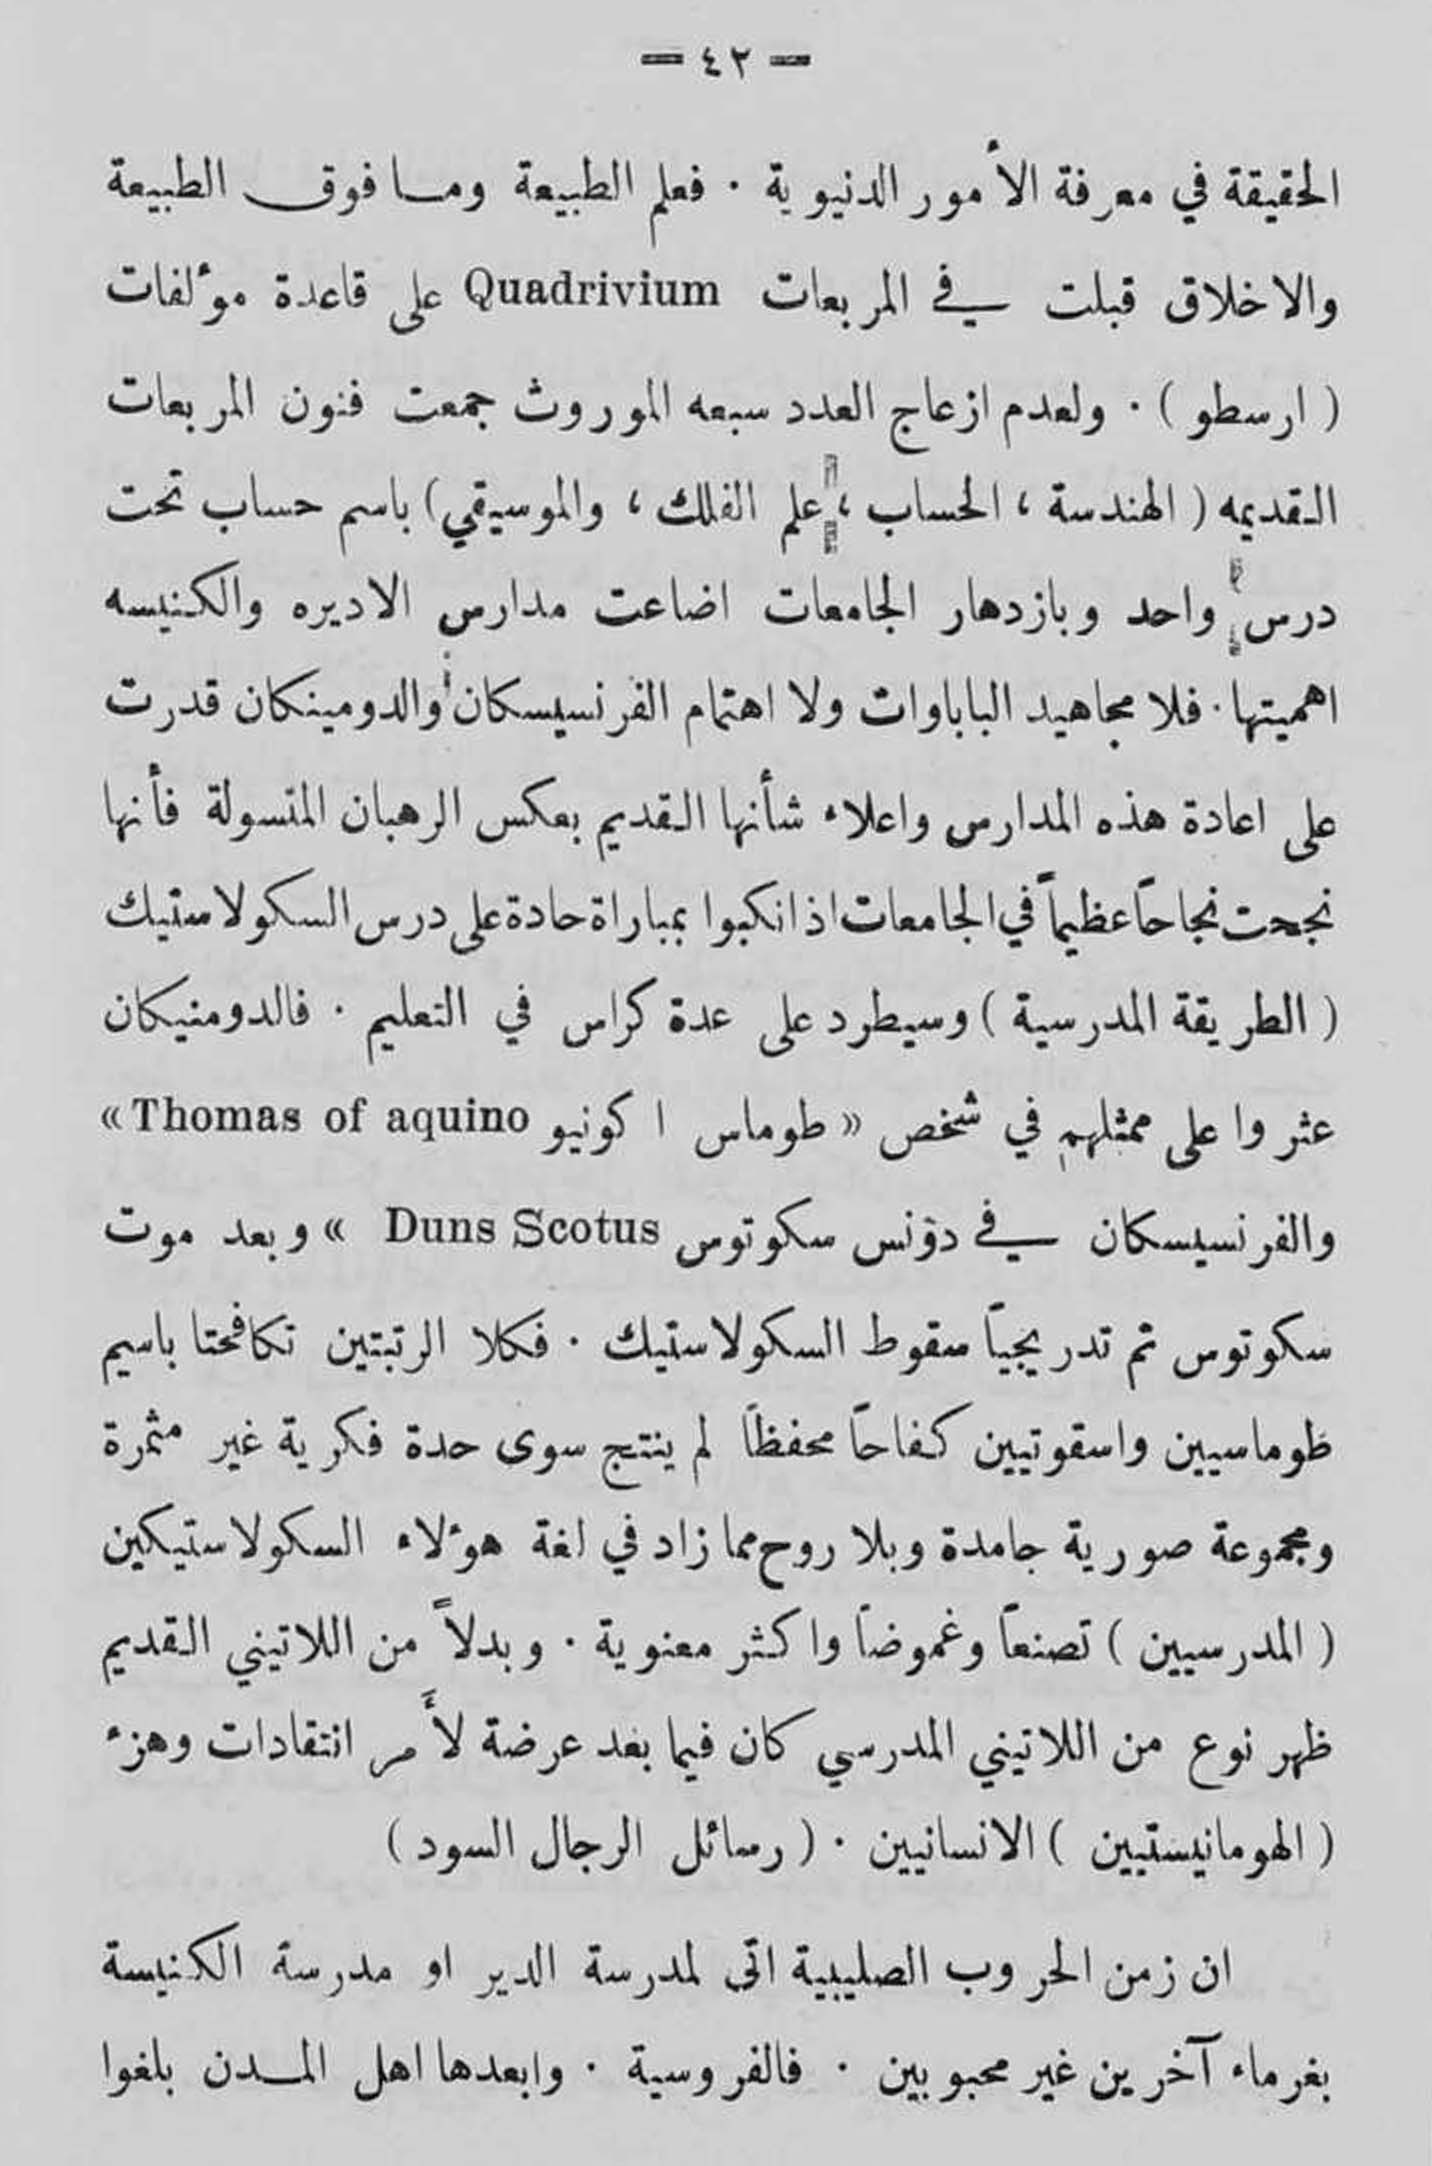 — ٤٢ —
الحقيقة في معرفة الأمور الدنيوية . فعلم الطبيعة وما فوق الطبيعة
والاخلاق قبلت في المربعات Quadrivium على قاعدة مؤلفات
( ارسطو ) . ولعدم ازعاج العدد سبعه الموروث جمعت فنون المربعات
القديمه ( الهندسة ، الحساب ، علم الفلك ، والموسيقي ) باسم حساب تحت
درس واحد وبازدهار الجامعات اضاعت مدارس الاديره والكنيسه
اهميتها . فلا مجاهيد الباباوات ولا اهتمام الفرنسيسكان والدومينكان قدرت
على اعادة هذه المدارس واعلاء شأنها القديم بعكس الرهبان المتسولة فأنها
نجحت نجاحاً عظيماً في الجامعات اذ انكبوا بمباراة حادة على درس السكولاستيك
( الطريقة المدرسية ) وسيطرد على عدة كراس في التعليم . فالدومنيكان
عثروا على ممثلهم في شخص « طوماس اكونيو Thomas of aquino »
والفرنسيسكان في دؤنس سكوتوس Duns Scotus » وبعد موت
سكوتوس تم تدريجياً سقوط السكولاستيك . فكلا الرتبتين تكافحتا باسيم
طوماسيين واسقوتيين كفاحاً محفظاً لم ينتج سوى حدة فكرية غير مثمرة
ومجموعة صورية جامدة وبلا روح مما زاد في لغة هؤلاء السكولاستيكين
( المدرسيين ) تصنعاً وغموضاً واكثر معنوية . وبدلاً من اللاتيني القديم
ظهر نوع من اللاتيني المدرسي كان فيما بعد عرضة لأمر انتقادات وهزء
( الهومانيستيين ) الانسانيين . ( رسائل الرجال السود )
ان زمن الحروب الصليبية اتى لمدرسة الدير او مدرسة الكنيسة
بغرماء آخرين غير محبوبين . فالفروسية . وابعدها اهل المدن بلغوا